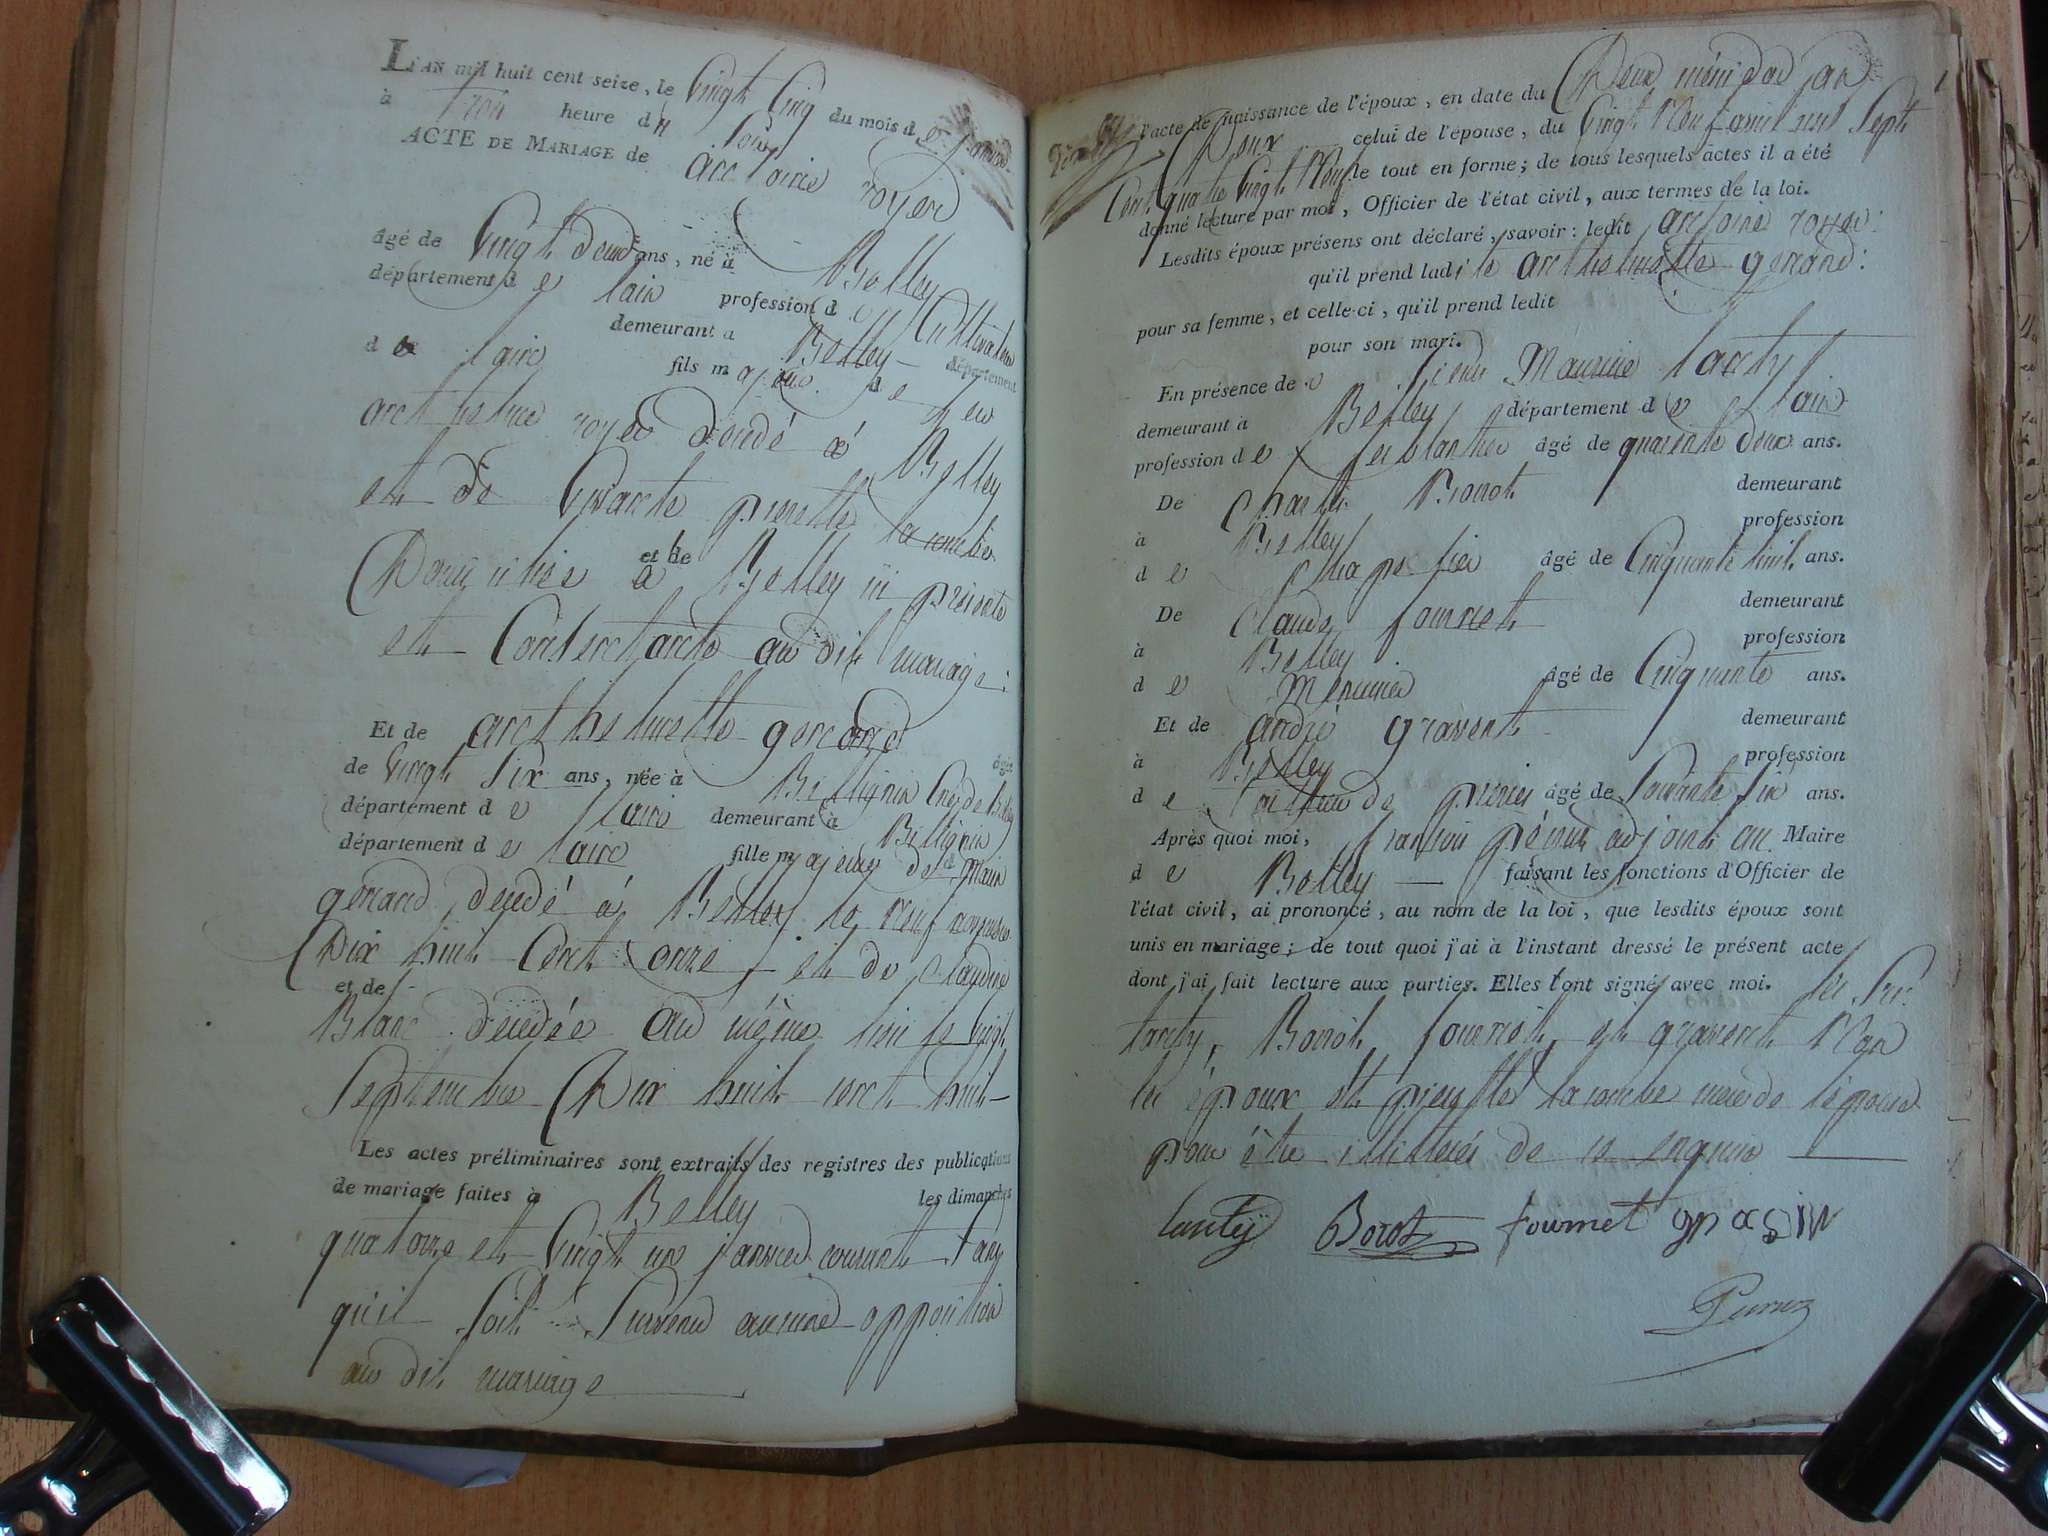 L'AN mil huit cent seize, le Vingt Cinq du mois de janvier
à trois heure du soir
ACTE DE MARIAGE de antoine royer
âgé de Vingt deux ans, né à Belley
département de lain profession de Cultivateur
demeurant a Belley département
de lain fils majeur de feu
anthelme royer décédé à Belley
et de Vivante pierrette lacombe
Domiciliée a Belley ici présente
et de
et Consentante au dit mariage:
Et de anthelmette gerand âgée
de Vingt Six ans, née à Billignin
département de lain demeurant à Billignin
département de lain fille majeure de
gerand, décédé à Belley le Neuf
Dix huit Cent onze et de Claudine
et de
Blanc décédée au même lieu le Vingt
Septembre Dix huit cent huit
Les actes préliminaires sont extraits des registres des publications
de mariage faites à Belley les dimanches
quatorze et Vingt un janvier courant sans
qu'il soit survenu aucune opposition
au dit mariage
l'acte de naissance de l'époux, en date du Deux an
Deux celui de l'épouse, du Vingt Neuf avril mil Sept
Cent quatre Vingt Neuf le tout en forme; de tous lesquels actes il a été
donné lecture par moi, Officier de l'état civil, aux termes de la loi.
Lesdits époux présens ont déclaré, savoir: ledit antoine royer:
qu'il prend ladite anthelmette gerand:
pour sa femme, et celle-ci, qu'il prend ledit
pour son mari.
En présence de Sieur Maurice lanty
demeurant à Belley département de lain
profession de ferblantier âgé de quarante deux ans.
De Charles Borot demeurant
à Belley profession
de Chapelier âgé de Cinquante huit ans.
De Claude fournet demeurant
à Belley profession
de Menuisier âgé de Cinquante ans.
Et de andré gravent demeurant
à Belley profession
de tailleur de pierres âgé de Soixante Six ans.
Après quoi moi, françois adjoint au Maire
de Belley faisant les fonctions d'Officier de
l'état civil, ai prononcé, au nom de la loi, que lesdits époux sont
unis en mariage; de tout quoi j'ai à l'instant dressé le présent acte
dont j'ai fait lecture aux parties. Elles l'ont signé avec moi. les Srs
lanty, Borot, fournet, et gravent Non
les époux et pierrette lacombe mère de l'époux
pour être illitérés de ce enquis
lantÿ Borot fournet